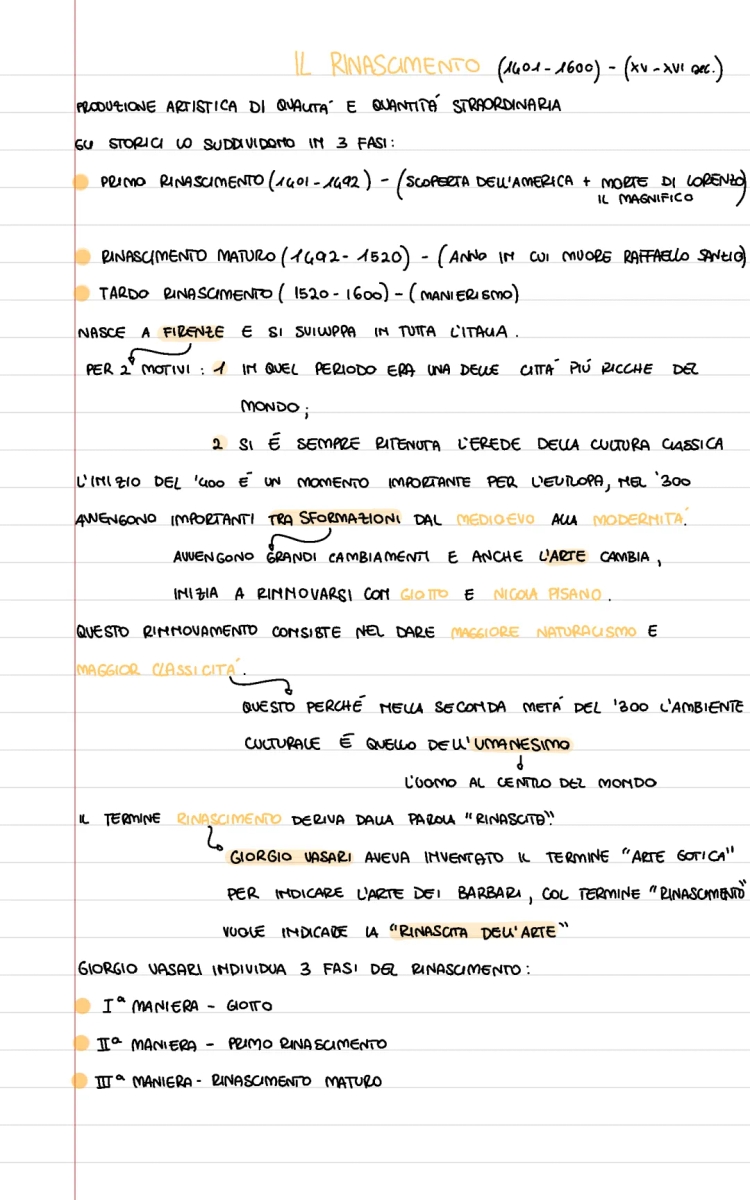 IL RINASCIMENTO (1401-1600) - (XV-XVI sec.)
PRODUZIONE ARTISTICA DI QUALITÁ E QUANTITÁ STRAORDINARIA
GLI STORICI LO SUDDIVIDONO IN 3 FASI:
PRIMO RINASCIMENTO (1401-1492) - (SCOPERTA DELL'AMERICA + MORTE DI LORENZO
IL MAGNIFICO)
RINASCIMENTO MATURO (1492-1520) - (ANNO IN CUI MUORE RAFFAELLO SANZIO)
TARDO RINASCIMENTO (1520-1600) - (MANIERISMO)
NASCE A FIRENZE E SI SVILUPPA IN TUTTA L'ITALIA.
PER 2 MOTIVI: 1 IN QUEL PERIODO ERA UNA DELLE CITTÁ PIÚ RICCHE DEL
MONDO;
2 SI É SEMPRE RITENUTA L'EREDE DELLA CULTURA CLASSICA
L'INIZIO DEL '400 É UN MOMENTO IMPORTANTE PER L'EUROPA, NEL '300
AVVENGONO IMPORTANTI TRASFORMAZIONI DAL MEDIOEVO ALLA MODERNITÁ.
AVVENGONO GRANDI CAMBIAMENTI E ANCHE L'ARTE CAMBIA,
INIZIA A RINNOVARSI CON GIOTTO E NICOLA PISANO.
QUESTO RINNOVAMENTO CONSISTE NEL DARE MAGGIORE NATURALISMO E
MAGGIOR CLASSICITÁ.
QUESTO PERCHÉ NELLA SECONDA METÁ DEL '300 L'AMBIENTE
CULTURALE É QUELLO DELL'UMANESIMO
L'UOMO AL CENTRO DEL MONDO
IL TERMINE RINASCIMENTO DERIVA DALLA PAROLA "RINASCITA".
GIORGIO VASARI AVEVA INVENTATO IL TERMINE "ARTE GOTICA"
PER INDICARE L'ARTE DEI BARBARI, COL TERMINE "RINASCIMENTO"
VUOLE INDICARE LA "RINASCITA DELL'ARTE"
GIORGIO VASARI INDIVIDUA 3 FASI DEL RINASCIMENTO:
Iª MANIERA - GIOTTO
IIª MANIERA - PRIMO RINASCIMENTO
IIIª MANIERA - RINASCIMENTO MATURO